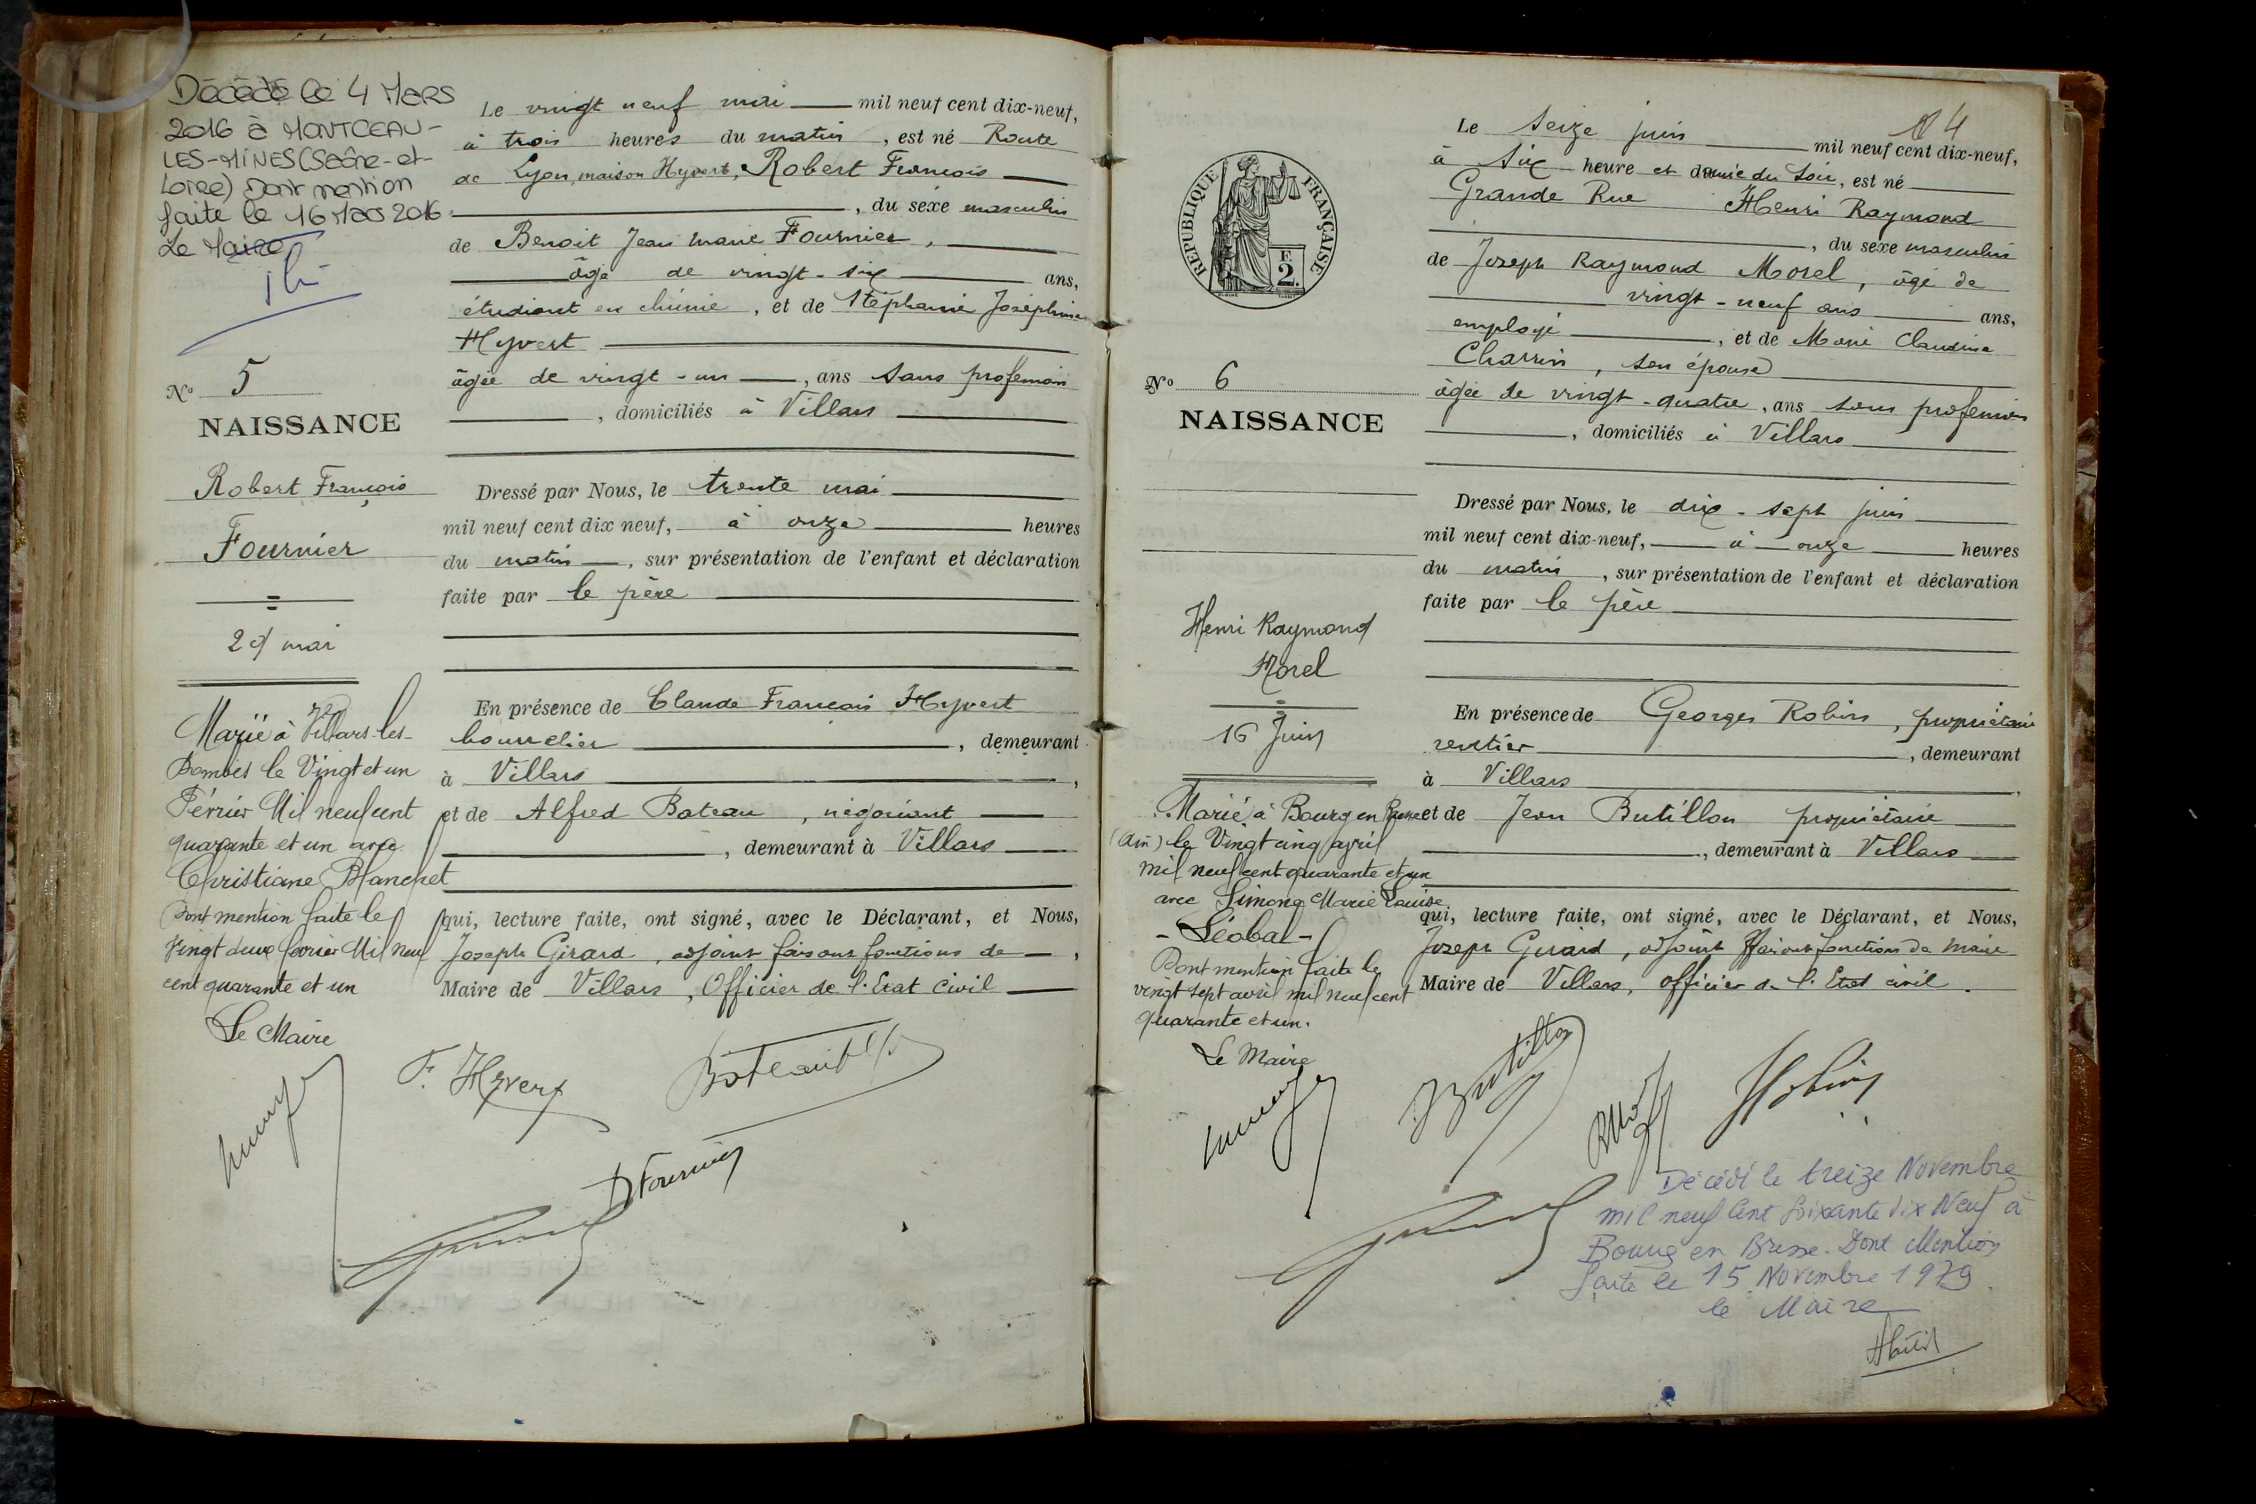 Décédé le 4 Mars
2016 à MONTCEAU-
LES-MINES (Saône-et-
Loire) Dont mention
faite le 16 Mars 2016
Le Maire
N° 5
NAISSANCE
Robert François
Fournier
29 mai
Marié à Villars-les-
Dombes le Vingt et un
Février Mil neuf cent
quarante et un avec
Christiane Blanchet
Dont mention faite le
Vingt deux février Mil neuf
cent quarante et un
Le Maire
Le vingt neuf mai mil neuf cent dix-neuf,
à trois heures du matin, est né Route
de Lyon, maison Hyvert, Robert François
, du sexe masculin
de Benoit Jean Marie Fournier,
âgé de vingt-six ans,
étudiant en chimie, et de Stéphanie Joséphine
Hyvert
âgée de vingt-un, ans sans profession
, domiciliés à Villars
Dressé par Nous, le trente mai
mil neuf cent dix neuf, à onze heures
du matin, sur présentation de l'enfant et déclaration
faite par le père
En présence de Claude François Hyvert
bourrelier, demeurant
à Villars,
et de Alfred Bateau, négociant
, demeurant à Villars
qui, lecture faite, ont signé, avec le Déclarant, et Nous,
Joseph Girard, adjoint faisant fonctions de,
Maire de Villars, Officier de l'Etat Civil
F. Hyvert
B Fournier
4
RÉPUBLIQUE FRANÇAISE
F.
2.
N° 6
NAISSANCE
Henri Raymond
Morel
16 Juin
Marié à Bourg en Bresse
(Ain) le Vingt cinq avril
mil neuf cent quarante et un
avec Simone Marie Louise
- Léobal -
Dont mention faite le
vingt sept avril mil neuf cent
quarante et un.
Le Maire
Le seize juin mil neuf cent dix-neuf,
à six heure et demie du soir, est né
Grande Rue Henri Raymond
, du sexe masculin
de Joseph Raymond Morel, âgé de
vingt-neuf ans ans,
employé, et de Marie Claudine
Charrin, son épouse
âgée de vingt-quatre, ans sans profession
, domiciliés à Villars
Dressé par Nous, le dix-sept juin
mil neuf cent dix-neuf, à onze heures
du matin, sur présentation de l'enfant et déclaration
faite par le père
En présence de Georges Robin, propriétaire
rentier, demeurant
à Villars,
et de Jean Butillon propriétaire
, demeurant à Villars
qui, lecture faite, ont signé, avec le Déclarant, et Nous,
Joseph Girard, adjoint faisant fonctions de Maire
Maire de Villars, officier de l'Etat civil.
Butillon
Décédé le treize Novembre
mil neuf Cent Soixante dix Neuf à
Bourg en Bresse. Dont Mention
faite le 15 Novembre 1979.
le Maire